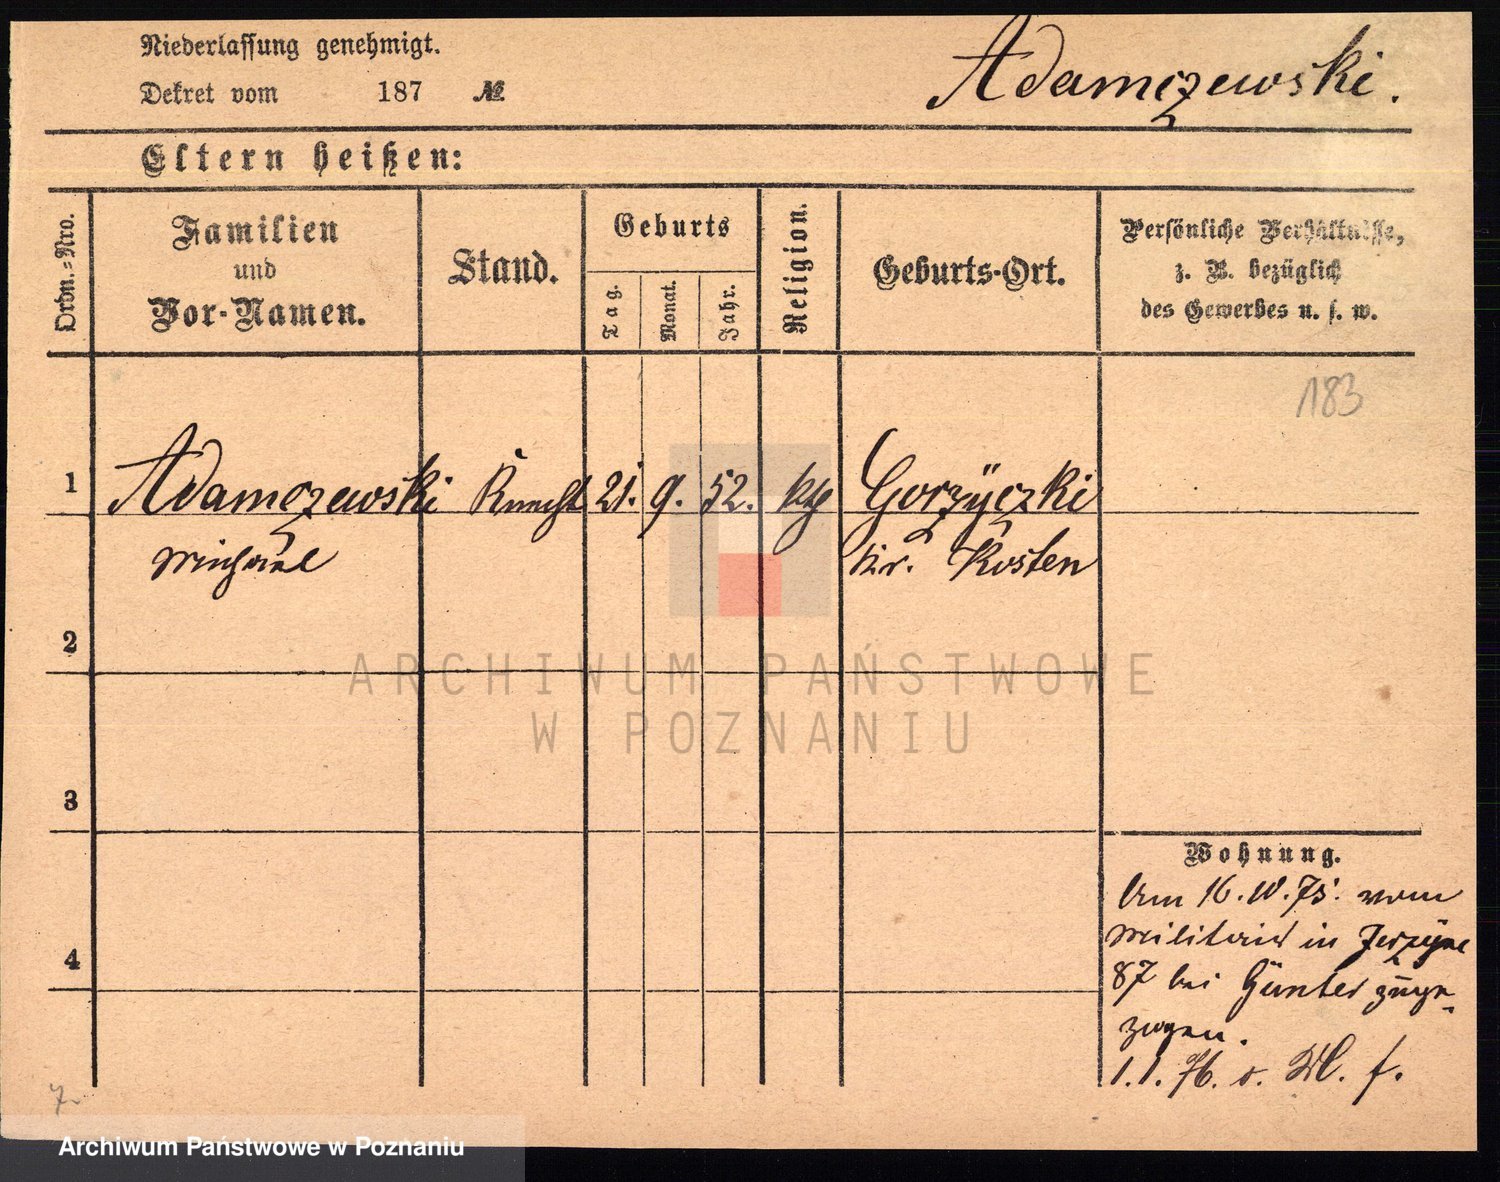 Niederlassung genehmigt.
Dekret vom 187 №
Adamczewski.
Eltern heißen:
Ordn.-Nro.
Familien
und
Vor-Namen.
Stand.
Geburts
Tag.
Monat.
Jahr.
Religion.
Geburts-Ort.
Persönliche Verhältnisse,
z. B. bezüglich
des Gewerbes u. s. w.
183
1 Adamczewski Knecht 21. 9. 52. kth Gorzÿczki
Michael Kr. Kosten
2
ARCHIWUM PAŃSTWOWE
W POZNANIU
3
Wohnung.
Am 16. 10. 75. vom
Militair in
4
87 bei Günter zuge-
zogen.
1. 1. 76.
Archiwum Państwowe w Poznaniu